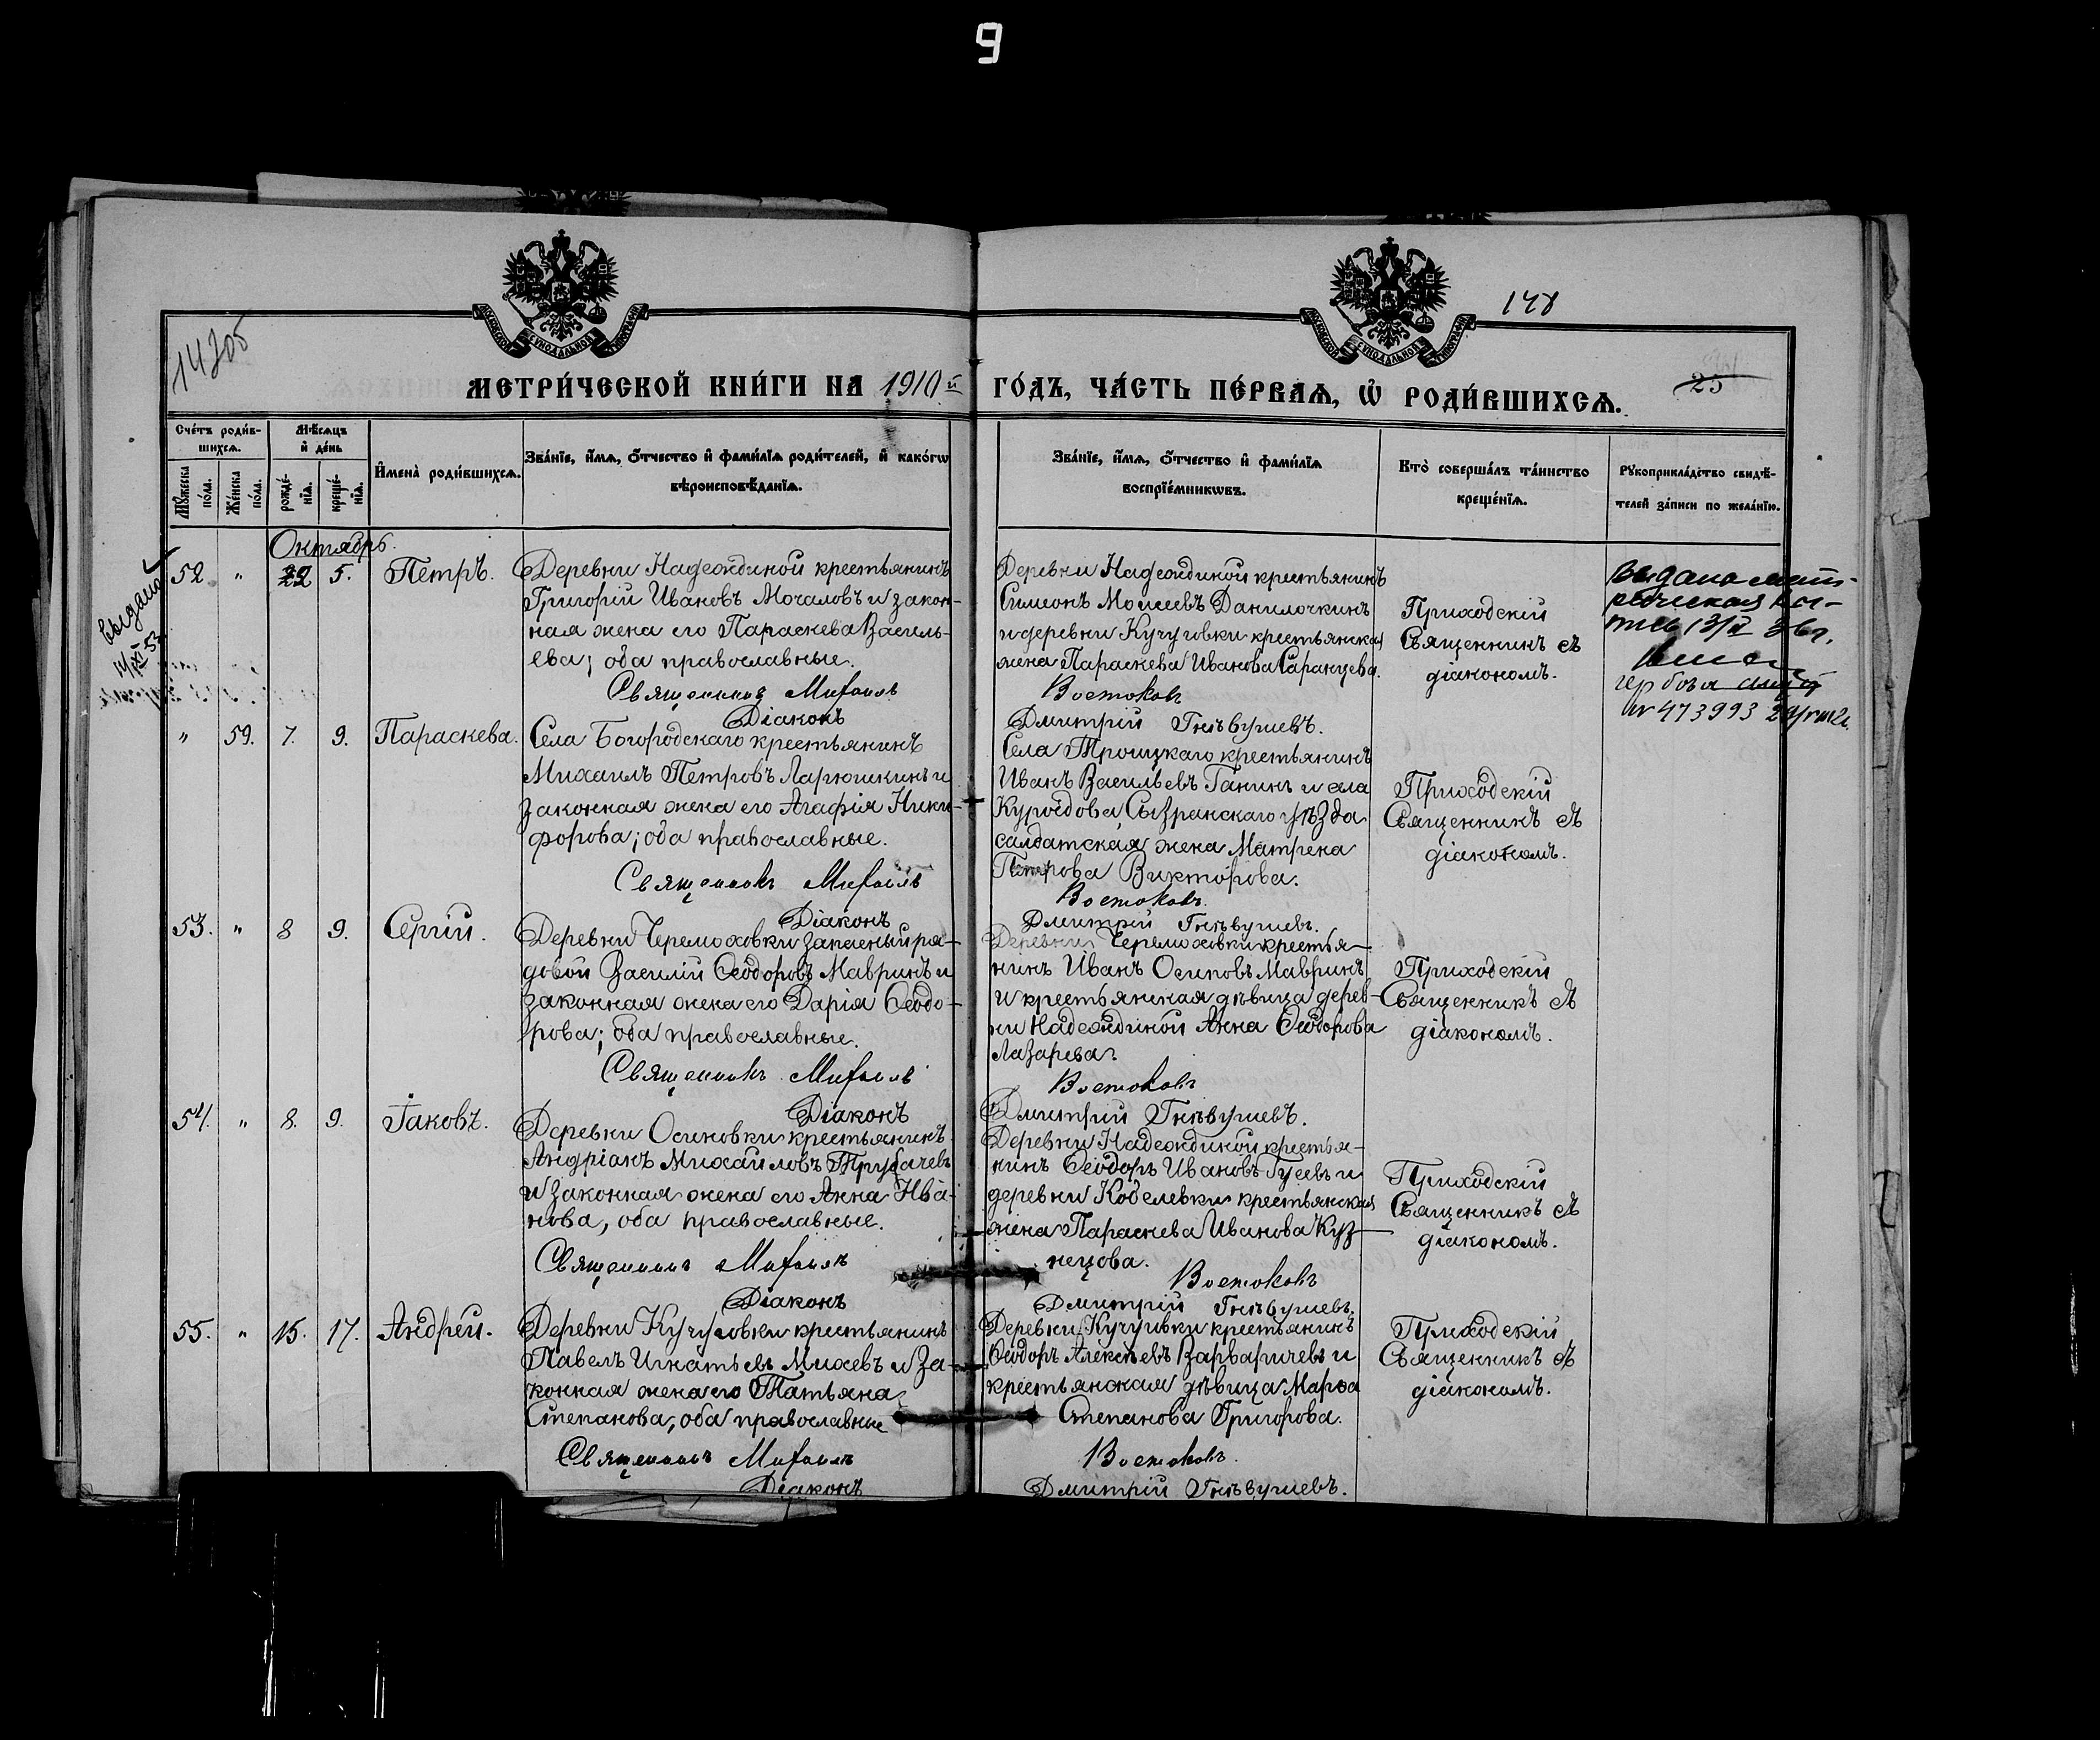 9
МОСКОВСКОЙ СѴНОДАЛЬНОЙ ТИПОГРАФІИ
МОСКОВСКОЙ СѴНОДАЛЬНОЙ ТИПОГРАФІИ
148
14205
МЕТРИ́ЧЕСКОЙ КНИ́ГИ НА 1910й ГО́ДЪ, ЧА́СТЬ ПЕ́РВАѦ, Ѽ РОДИ́ВШИХСѦ.
25
Сче́тъ роди́в-
шихсѧ.
Мꙋ́жеска по́ла.
Же́нска по́ла.
Мѣ́сѧцъ и҆ де́нь
рожде́-
нїѧ.
креще́-
нїѧ.
И҆мена̀ роди́вшихсѧ.
Зва́нїе, и҆́мѧ, ѻ҆́тчество и҆ фами́лїѧ роди́телей, и҆ како́гѡ
вѣроисповѣ́данїѧ.
Зва́нїе, и҆́мѧ, ѻ҆́тчество и҆ фами́лїѧ
воспрїе́мникѡвъ.
Кто̀ соверша́лъ та́инство
креще́нїѧ.
Рꙋкоприкла́дство свидѣ́-
телей за́писи по жела́нїю.
Октябрь.
52 " 22 5. Петръ.
Деревни Надеждиной крестьянинъ
Григорій Ивановъ Мочаловъ и закон-
ная жена его Параскева Василь-
ева; оба православные.
Священникъ Михаилъ
Діаконъ
Деревни Надеждиной крестьянинъ
Симеонъ Моисеевъ Данилочкинъ
и деревни Кучуговки крестьянская
жена Параскева Иванова Саранцева.
Востоковъ
Дмитрій Гнѣвушевъ.
Приходскій
Священникъ съ
діакономъ.
выдана
гербовая
№ 473993
" 59. 7. 9. Параскева.
Села Богородскаго крестьянинъ
Михаилъ Петровъ Ларюшкинъ и
законная жена его Агафія Ники-
форова; оба православные.
Священникъ Михаилъ
Діаконъ
Села Троицкаго крестьянинъ
Иванъ Васильевъ Ганинъ и села
Куроѣдова Сызранскаго уѣзда
салдатская жена Матрена
Петрова Викторова.
Востоковъ.
Дмитрій Гнѣвушевъ.
Приходскій
Священникъ съ
діакономъ.
53. " 8 9. Сергій.
Деревни Черемоховки запасный ря-
довой Василій Ѳеодоровъ Мавринъ и
законная жена его Дарія Ѳеодо-
рова; оба православные.
Священникъ Михаилъ
Діаконъ
Деревни Черемоховки крестья-
нинъ Иванъ Осиповъ Мавринъ
и крестьянская дѣвица дерев-
ни Надеждиной Анна Ѳеодорова
Лазарева.
Востоковъ
Дмитрій Гнѣвушевъ.
Приходскій
Священникъ съ
діакономъ.
54. " 8. 9. Іаковъ.
Деревни Осиновки крестьянинъ
Андріанъ Михайловъ Трубачевъ
и законная жена его Анна Ива-
нова, оба православные.
Священникъ Михаилъ
Діаконъ
Деревни Надеждиной крестья-
нинъ Ѳеодоръ Ивановъ Гусевъ и
деревни Кобелевки крестьянская
жена Параскева Иванова Куз-
нецова.
Востоковъ
Дмитрій Гнѣвушевъ.
Приходскій
Священникъ съ
діакономъ.
55. " 15. 17. Андрей.
Деревни Кучуговки крестьянинъ
Павелъ Игнатьевъ Михеевъ и за-
конная жена его Татьяна
Степанова, оба православные
Священникъ Михаилъ
Діаконъ
Деревни Кучуговки крестьянинъ
Ѳеодоръ Алексѣевъ Варваричевъ и
крестьянская дѣвица Марѳа
Степанова Григорова.
Востоковъ.
Дмитрій Гнѣвушевъ.
Приходскій
Священникъ съ
діакономъ.